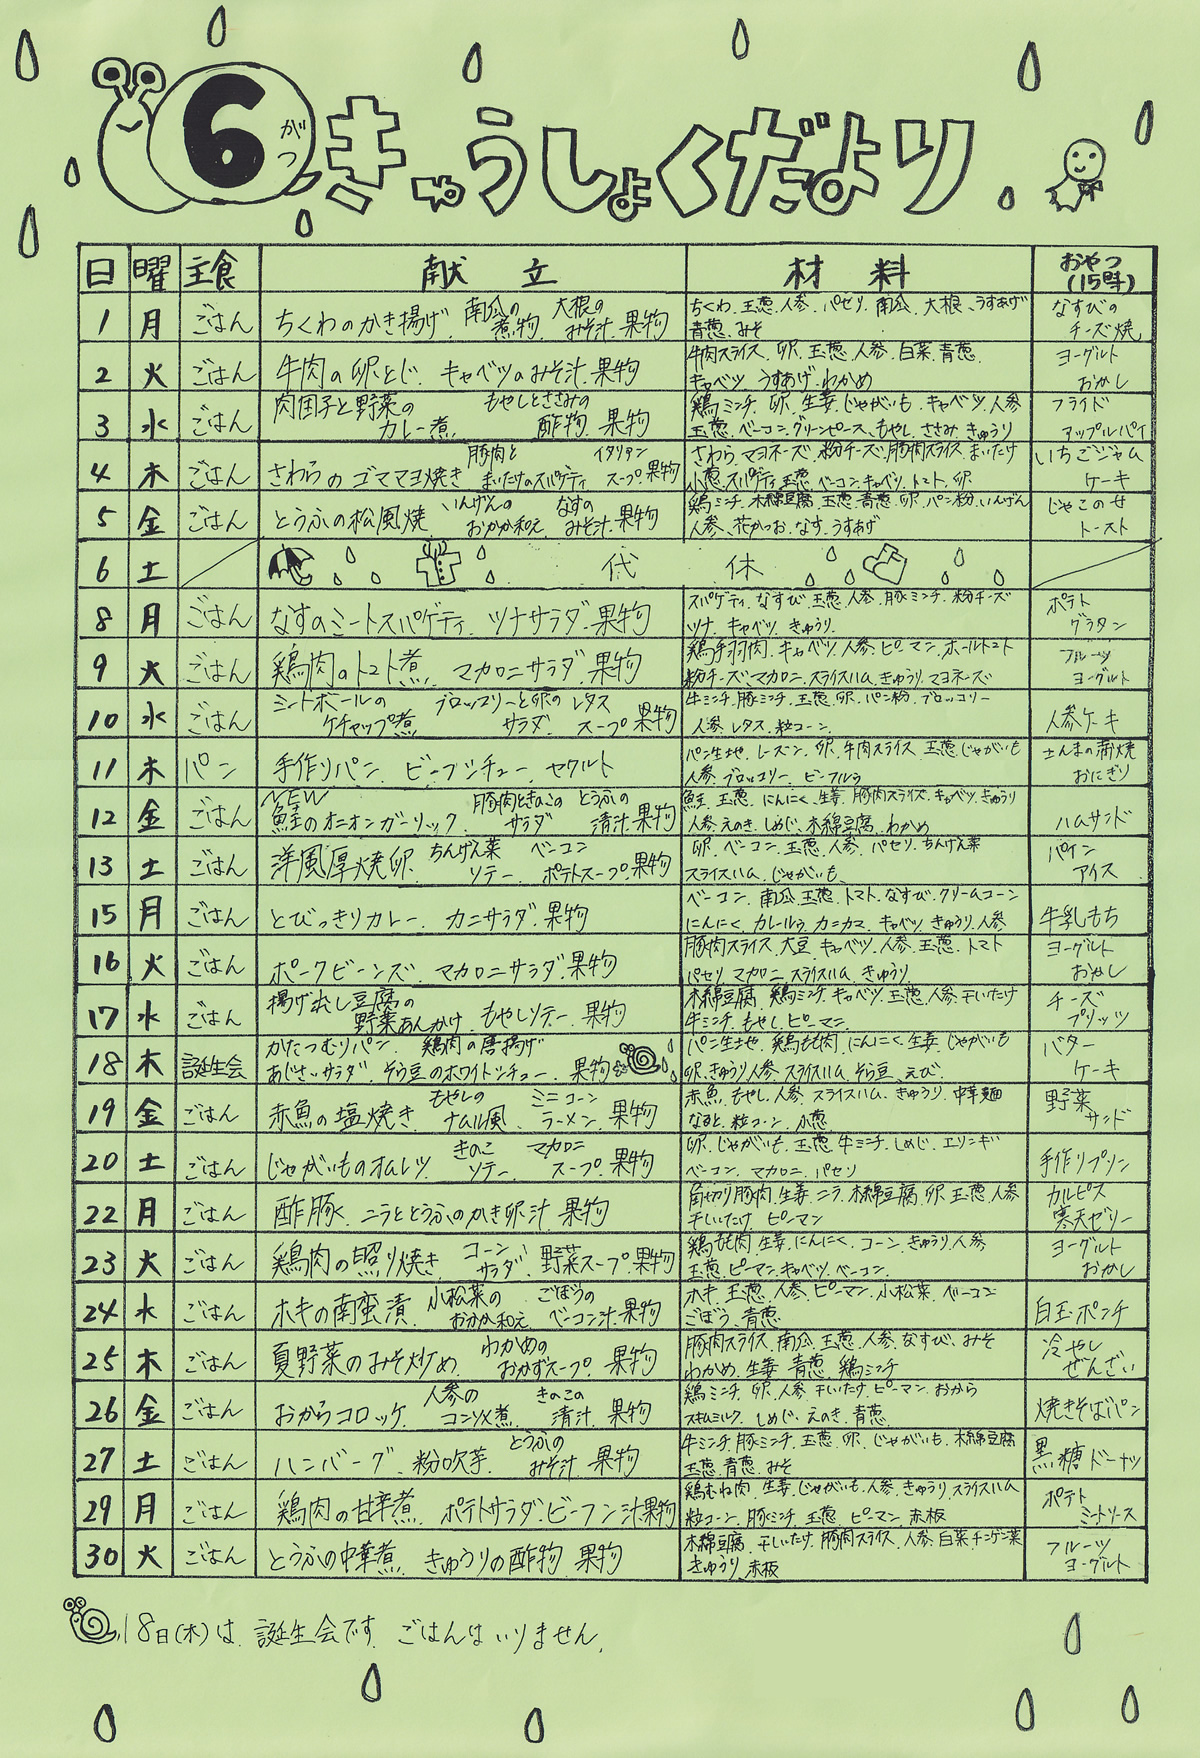 6がつ きゅうしょくだより
日 曜 主食 献立 材料 おやつ(15時)
1 月 ごはん ちくわのかき揚げ、南瓜の煮物、大根のみそ汁、果物 ちくわ、玉葱、人参、パセリ、南瓜、大根、うすあげ なすびの
青葱、みそ チーズ焼
2 火 ごはん 牛肉の卵とじ、キャベツのみそ汁、果物 牛肉スライス、卵、玉葱、人参、白菜、青葱 ヨーグルト
キャベツ、うすあげ、わかめ おかし
3 水 ごはん 肉団子と野菜のカレー煮、もやしとささみの酢物、果物 鶏ミンチ、卵、生姜、じゃがいも、キャベツ、人参 フライド
玉葱、ベーコン、グリーンピース、もやし、ささみ、きゅうり アップルパイ
4 木 ごはん さわらのゴママヨ焼き、豚肉とまいたけのスパゲティ、イタリアンスープ、果物 さわら、マヨネーズ、粉チーズ、豚肉スライス、まいたけ いちごジャム
小葱、スパゲティ、玉葱、ベーコン、キャベツ、トマト、卵 ケーキ
5 金 ごはん とうふの松風焼、いんげんのおかか和え、なすのみそ汁、果物 鶏ミンチ、木綿豆腐、玉葱、青葱、卵、パン粉、いんげん じゃこのせ
人参、花かつお、なす、うすあげ トースト
6 土 代 休
8 月 ごはん なすのミートスパゲティ、ツナサラダ、果物 スパゲティ、なすび、玉葱、人参、豚ミンチ、粉チーズ ポテト
ツナ、キャベツ、きゅうり グラタン
9 火 ごはん 鶏肉のトマト煮、マカロニサラダ、果物 鶏手羽肉、キャベツ、人参、ピーマン、ホールトマト フルーツ
粉チーズ、マカロニ、スライスハム、きゅうり、マヨネーズ ヨーグルト
10 水 ごはん ミートボールのケチャップ煮、ブロッコリーと卵のサラダ、レタススープ、果物 牛ミンチ、豚ミンチ、玉葱、卵、パン粉、ブロッコリー 人参ケーキ
人参、レタス、粒コーン
11 木 パン 手作りパン、ビーフシチュー、ヤクルト パン生地、レーズン、卵、牛肉スライス、玉葱、じゃがいも さんまの蒲焼
人参、ブロッコリー、ビーフルウ おにぎり
12 金 ごはん NEW 鮭のオニオンガーリック、豚肉ときのこのサラダ、とうふの清汁、果物 鮭、玉葱、にんにく、生姜、豚肉スライス、キャベツ、きゅうり ハムサンド
人参、えのき、しめじ、木綿豆腐、わかめ
13 土 ごはん 洋風厚焼卵、ちんげん菜ソテー、ベーコンポテトスープ、果物 卵、ベーコン、玉葱、人参、パセリ、ちんげん菜 パイン
スライスハム、じゃがいも アイス
15 月 ごはん とびっきりカレー、カニサラダ、果物 ベーコン、南瓜、玉葱、トマト、なすび、クリームコーン 牛乳もち
にんにく、カレールウ、カニカマ、キャベツ、きゅうり、人参
16 火 ごはん ポークビーンズ、マカロニサラダ、果物 豚肉スライス、大豆、キャベツ、人参、玉葱、トマト ヨーグルト
パセリ、マカロニ、スライスハム、きゅうり おかし
17 水 ごはん 揚げ出し豆腐の野菜あんかけ、もやしソテー、果物 木綿豆腐、鶏ミンチ、キャベツ、玉葱、人参、干いたけ チーズ
牛ミンチ、もやし、ピーマン プリッツ
18 木 誕生会 かたつむりパン、鶏肉の唐揚げ パン生地、鶏もも肉、にんにく、生姜、じゃがいも バター
あじさいサラダ、そら豆のホワイトシチュー、果物 卵、きゅうり、人参、スライスハム、そら豆、えび ケーキ
19 金 ごはん 赤魚の塩焼き、もやしのナムル風、ミニコーンラーメン、果物 赤魚、もやし、人参、スライスハム、きゅうり、中華麺 野菜
なると、粒コーン、小葱 サンド
20 土 ごはん じゃがいものオムレツ、きのこソテー、マカロニスープ、果物 卵、じゃがいも、玉葱、牛ミンチ、しめじ、エリンギ 手作りプリン
ベーコン、マカロニ、パセリ
22 月 ごはん 酢豚、ニラととうふのかき卵汁、果物 角切り豚肉、生姜、ニラ、木綿豆腐、卵、玉葱、人参 カルピス
干しいたけ、ピーマン 寒天ゼリー
23 火 ごはん 鶏肉の照り焼き、コーンサラダ、野菜スープ、果物 鶏もも肉、生姜、にんにく、コーン、きゅうり、人参 ヨーグルト
玉葱、ピーマン、キャベツ、ベーコン おかし
24 水 ごはん ホキの南蛮漬、小松菜のおかか和え、ごぼうのベーコン汁、果物 ホキ、玉葱、人参、ピーマン、小松菜、ベーコン 白玉ポンチ
ごぼう、青葱
25 木 ごはん 夏野菜のみそ炒め、わかめのおかずスープ、果物 豚肉スライス、南瓜、玉葱、人参、なすび、みそ 冷やし
わかめ、生姜、青葱、鶏ミンチ ぜんざい
26 金 ごはん おからコロッケ、人参のコンソメ煮、きのこの清汁、果物 鶏ミンチ、卵、人参、干いたけ、ピーマン、おから 焼きそばパン
スキムミルク、しめじ、えのき、青葱
27 土 ごはん ハンバーグ、粉吹芋、とうふのみそ汁、果物 牛ミンチ、豚ミンチ、玉葱、卵、じゃがいも、木綿豆腐 黒糖ドーナツ
玉葱、青葱、みそ
29 月 ごはん 鶏肉の甘辛煮、ポテトサラダ、ビーフン汁、果物 鶏むね肉、生姜、じゃがいも、人参、きゅうり、スライスハム ポテト
粒コーン、豚ミンチ、玉葱、ピーマン、赤板 ミートソース
30 火 ごはん とうふの中華煮、きゅうりの酢物、果物 木綿豆腐、干しいたけ、豚肉スライス、人参、白菜、チンゲン菜 フルーツ
きゅうり、赤板 ヨーグルト
18日(木)は、誕生会です。ごはんはいりません。